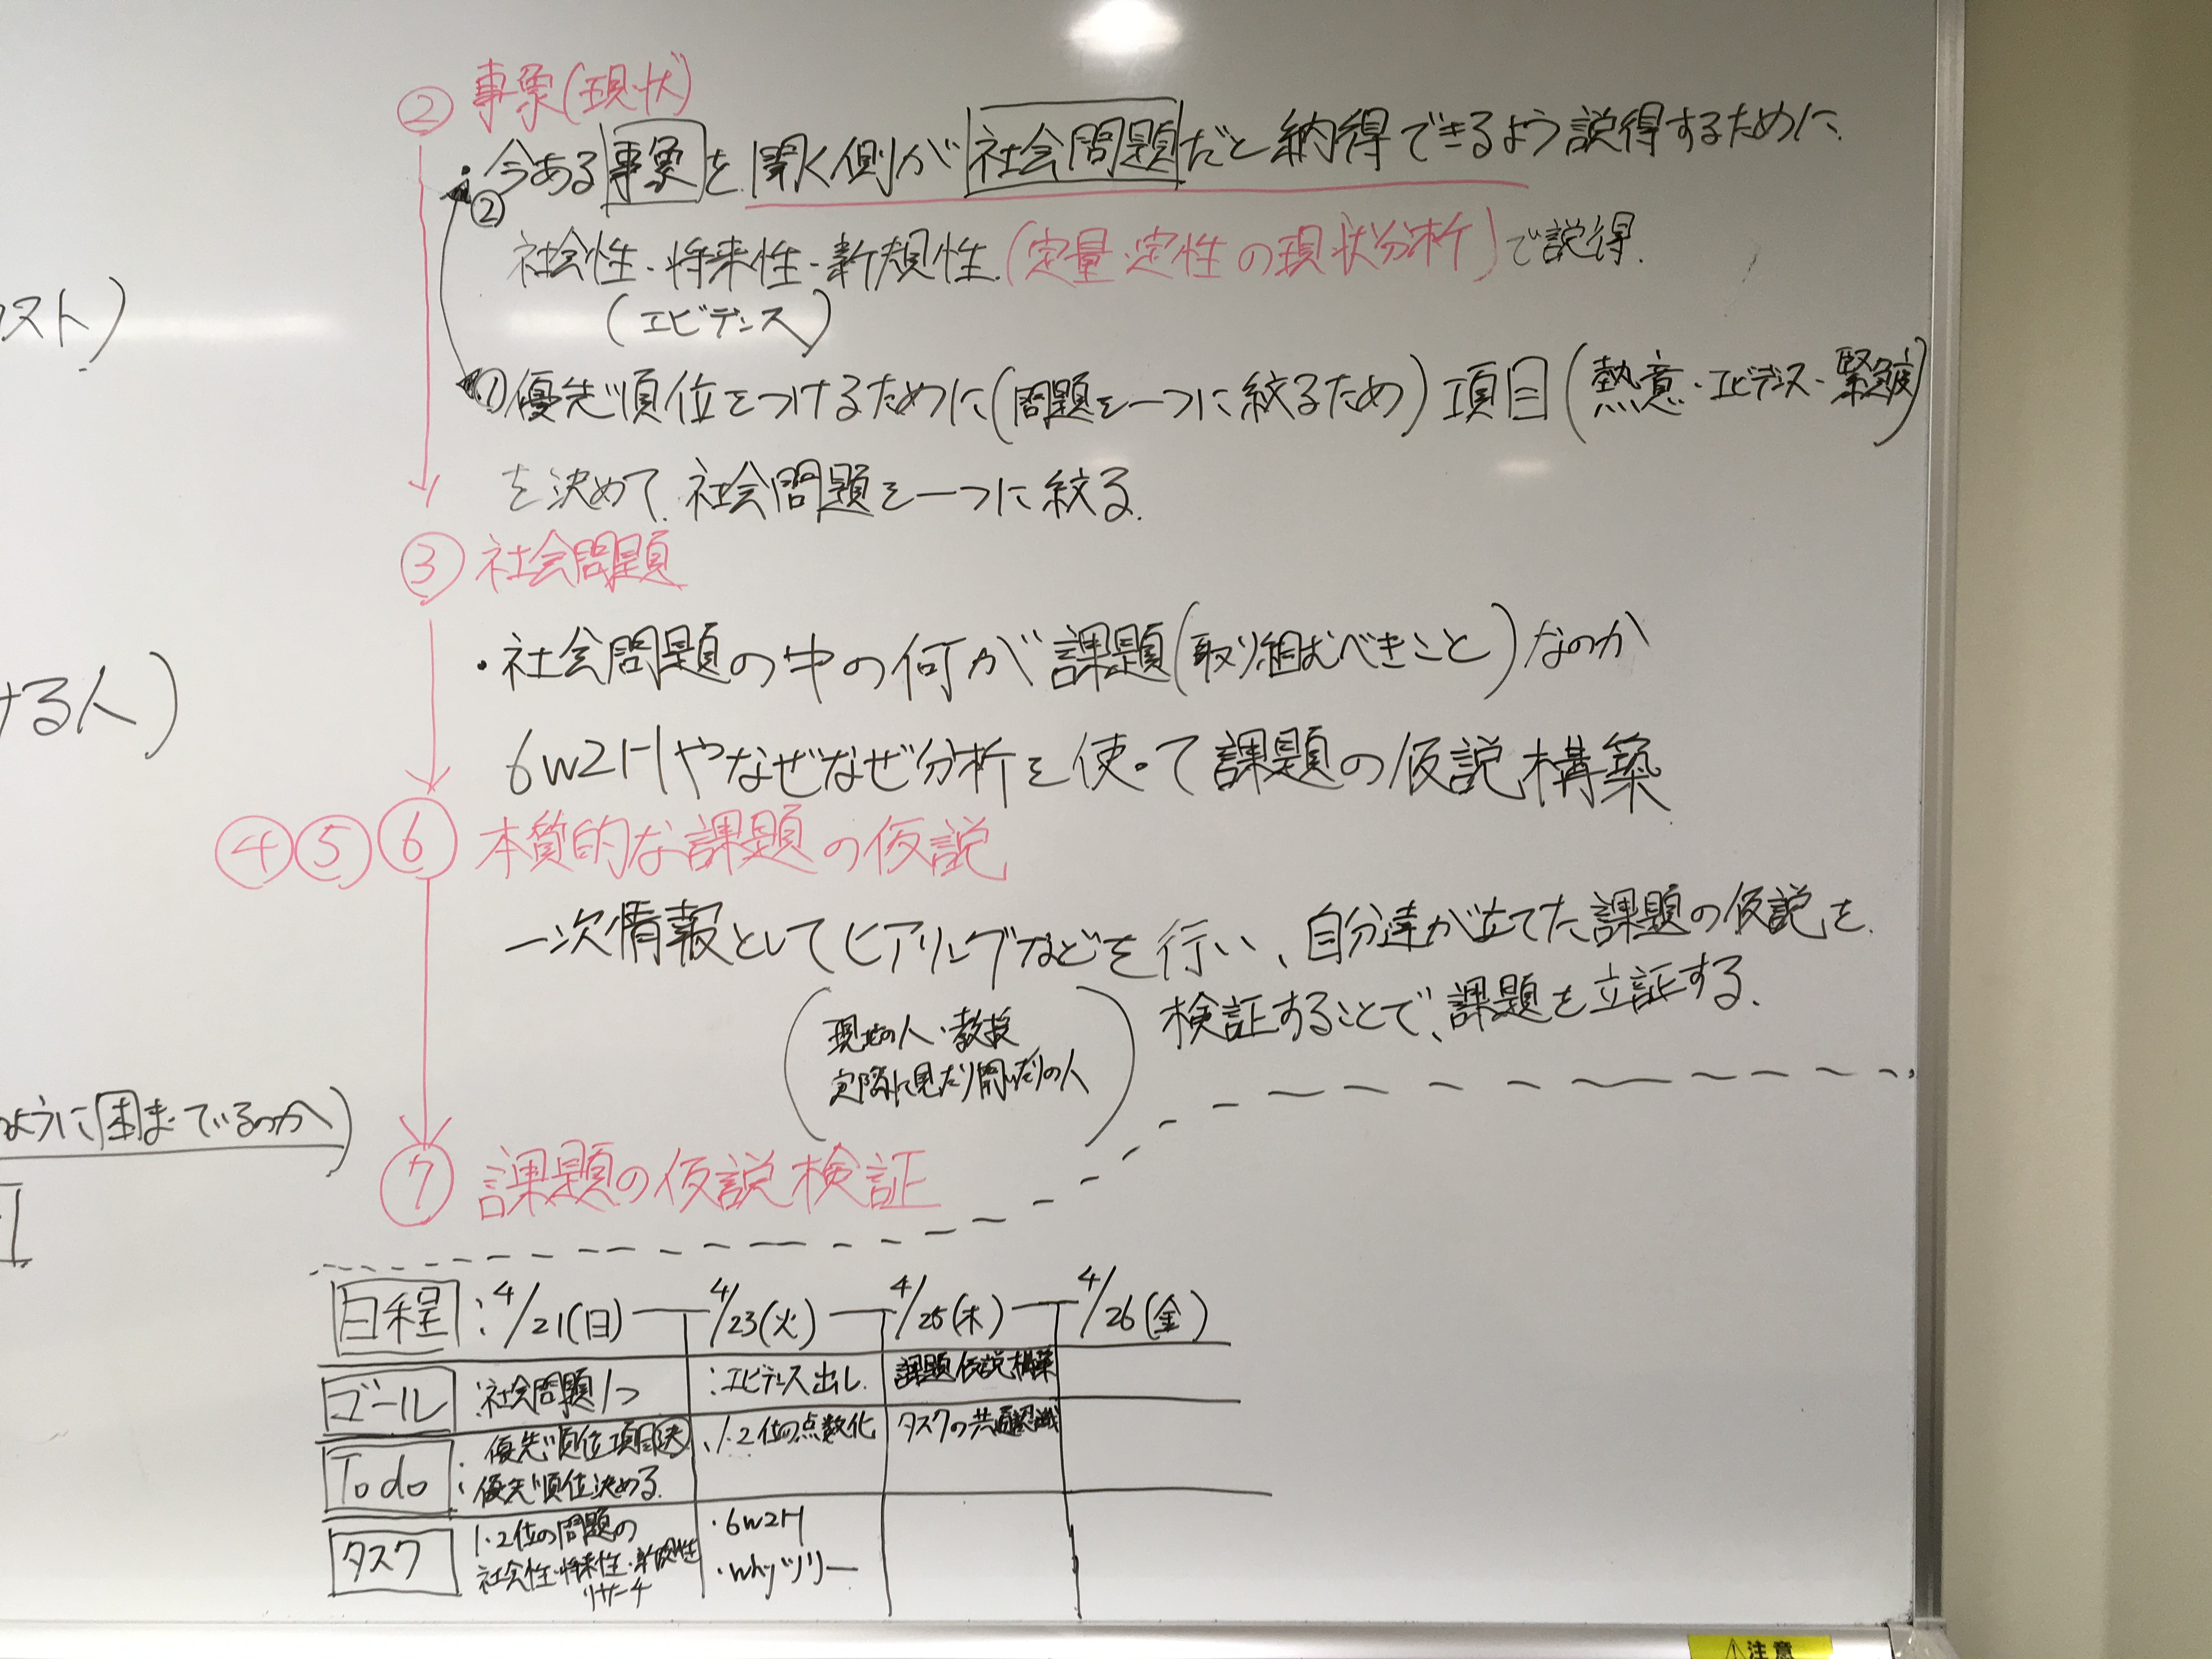 ② 事象(現状)
・今ある事象を聞く側が社会問題だと納得できるよう説得するために
②
社会性・将来性・新規性(定量・定性の現状分析)で説得.
(エビデンス)
①優先順位をつけるために(問題を一つに絞るため)項目(熱意・エビデンス・緊急度)
を決めて社会問題を一つに絞る.
③ 社会問題
・社会問題の中の何が課題(取り組むべきこと)なのか
6W2Hやなぜなぜ分析を使って課題の仮説構築
④⑤⑥ 本質的な課題の仮説
一次情報としてヒアリングなどを行い、自分達が立てた課題の仮説を
検証することで、課題を立証する.
(現地の人・教授
実際に見たり聞いたりの人)
⑦ 課題の仮説検証
スト)
ける人)
ように困まっているのか)
日程 : 4/21(日) 4/23(火) 4/25(木) 4/26(金)
ゴール :社会問題1つ :エビデンス出し 課題仮説構築
Todo :優先順位項目決 ・1・2位の点数化 タスクの共通認識
:優先順位決める
タスク 1・2位の問題の ・6W2H
社会性・将来性・新規性 ・whyツリー
リサーチ
⚠注意